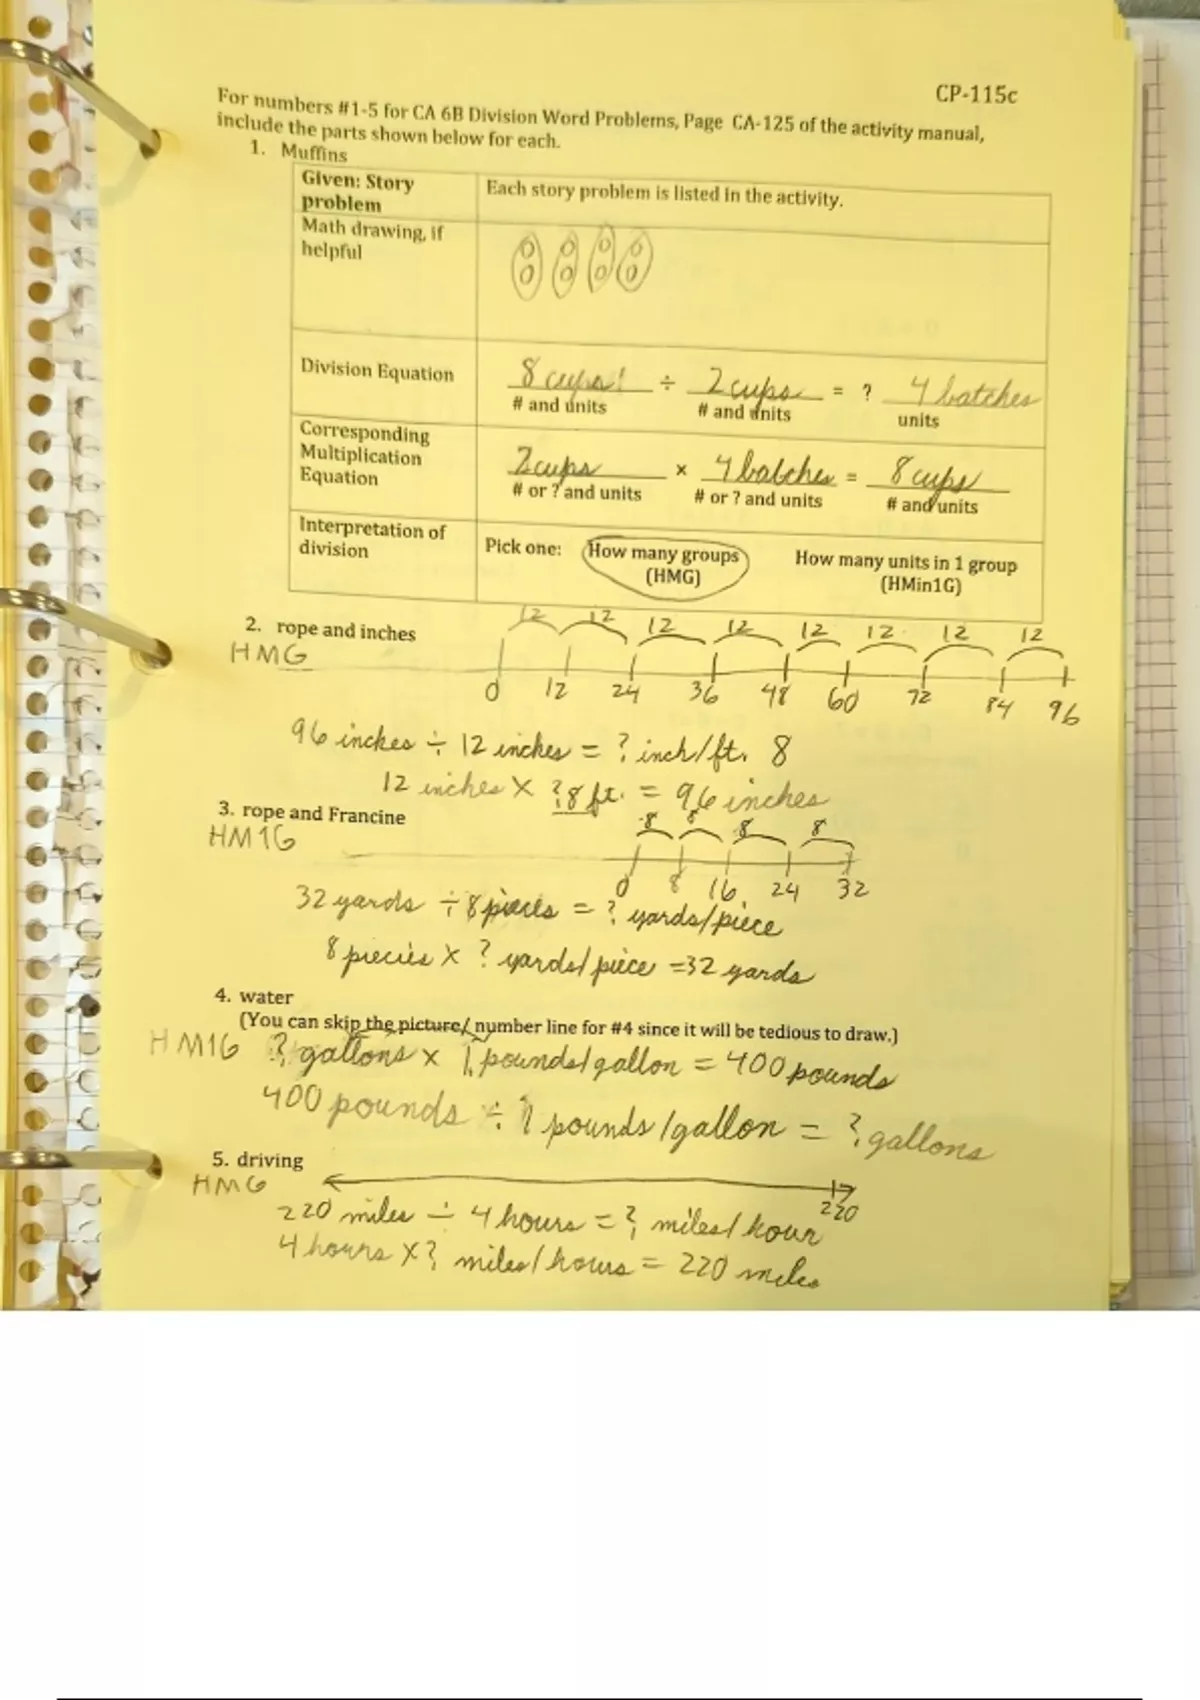 CP-115c
For numbers #1-5 for CA 6B Division Word Problems, Page CA-125 of the activity manual,
include the parts shown below for each.
1. Muffins
Given: Story problem
Each story problem is listed in the activity.
Math drawing, if helpful
Division Equation
8 cups ÷ 2 cups = ? 4 batches
# and units # and units units
Corresponding Multiplication Equation
2 cups × 4 batches = 8 cups
# or ? and units # or ? and units # and units
Interpretation of division
Pick one: How many groups (HMG) How many units in 1 group (HMin1G)
2. rope and inches
HMG
12 12 12 12 12 12 12 12
0 12 24 36 48 60 72 84 96
96 inches ÷ 12 inches = ? inch/ft. 8
12 inches × ? 8 ft. = 96 inches
3. rope and Francine
HM1G
8 8 8 8
0 8 16 24 32
32 yards ÷ 8 pieces = ? yards/piece
8 piecies × ? yards/piece = 32 yards
4. water
(You can skip the picture/ number line for #4 since it will be tedious to draw.)
HM1G ? gallons × pounds/gallon = 400 pounds
400 pounds ÷ pounds/gallon = ? gallons
5. driving
HMG
220
220 miles ÷ 4 hours = ? miles/hour
4 hours ×? miles/hours = 220 miles